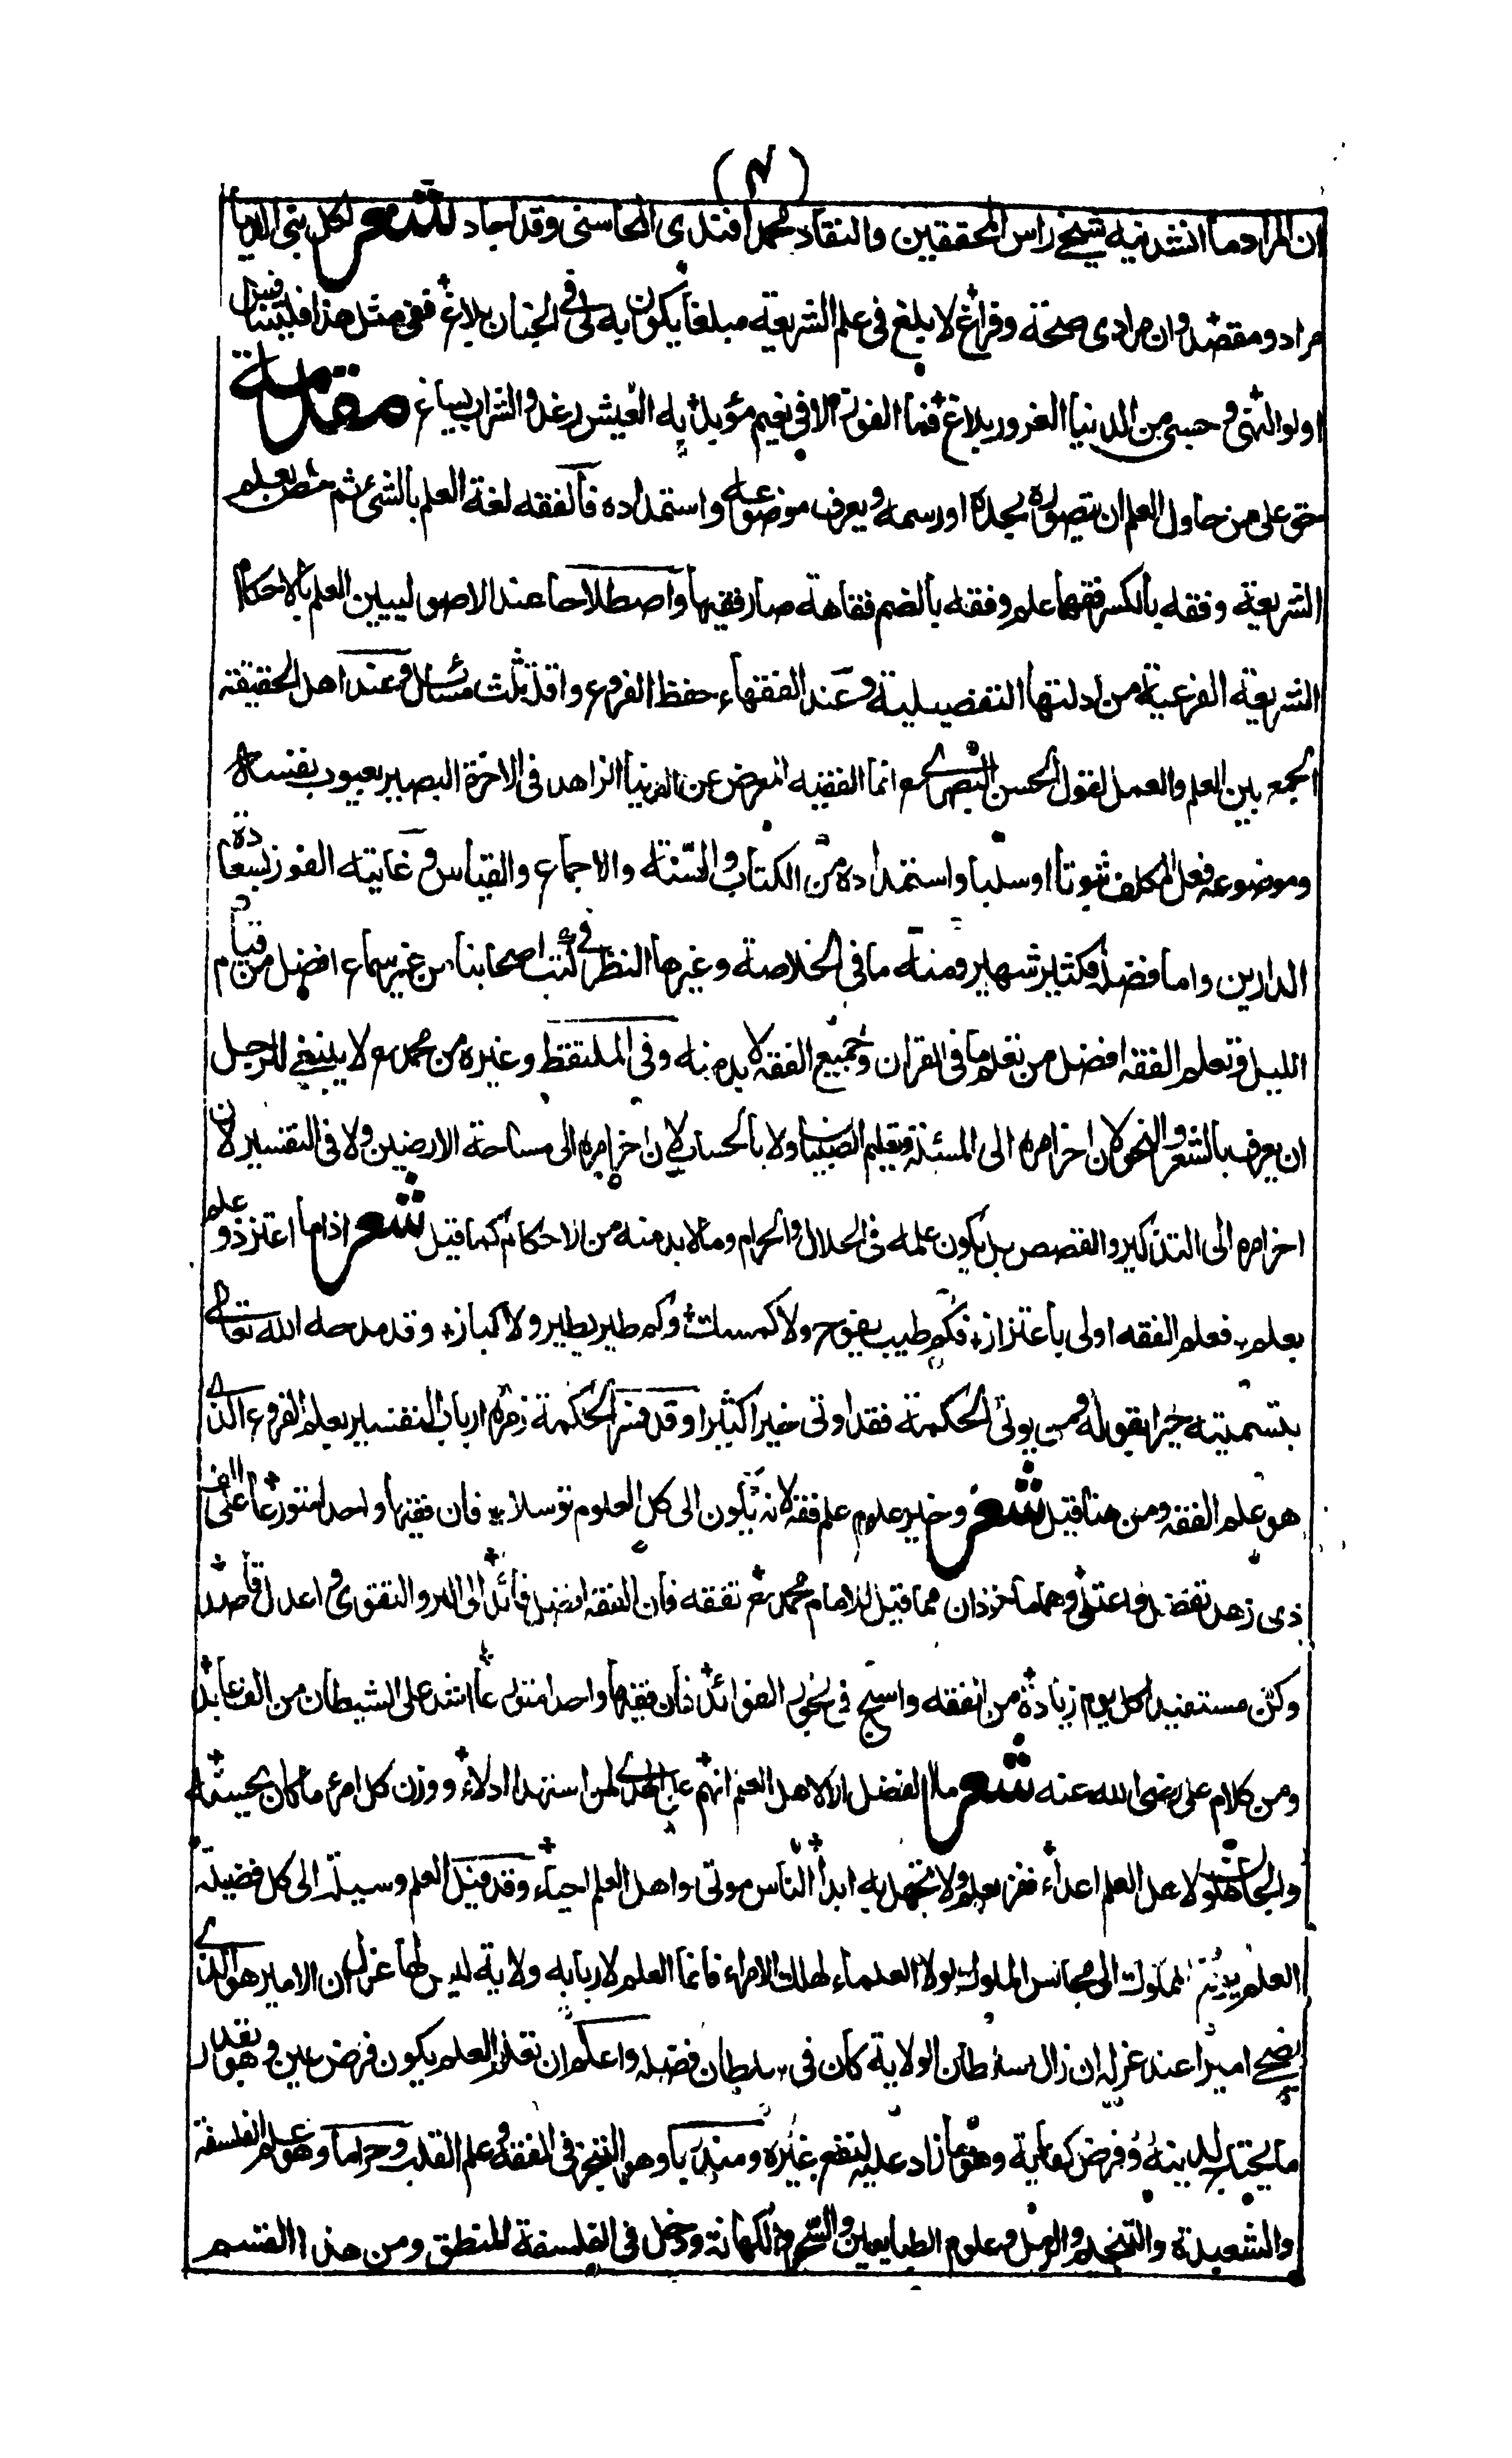 (٧)
ان المراد ما انشدنيه شيخي راس المحققين والنقاد محمد افندى المحاسنى وقد اجاد شعر لكل بنى الدنيا
مراد ومقصد وان مرادى صحة وفراغ لا بلغ فى علم الشريعة مبلغا يكون به لى فى الجنان بلاغ ففى مثل هذا فلينافس
اولو النهى وحسبى من الدنيا الغرور بلاغ فما الفوز الا فى نعيم مؤبد به العيش رغد والشراب يساغ مقدمة
حق على من حاول العلم ان يتصوره بحده او رسمه ويعرف موضوعه واستمداده فالفقه لغة العلم بالشئ ثم خص بعلم
الشريعة وفقه بالكسر فقها علم وفقه بالضم فقاهة صار فقيها واصطلاحا عند الاصوليين العلم بالاحكام
الشريعة الفرعية من ادلتها التفصيلية وعند الفقهاء حفظ الفروع واقله ثلث مسائل وعند اهل الحقيقة
الجمع بين العلم والعمل لقول الحسن البصرى انما الفقيه المعرض عن الدنيا الزاهد فى الاخرة البصير بعيوب نفسه
وموضوعه فعل المكلف ثبوتا او سلبا واستمداده من الكتاب والسنة والاجماع والقياس وغايته الفوز بسعادة
الدارين واما فضله فكثير شهير ومنه ما فى الخلاصة وغيرها النظر فى كتب اصحابنا من غير سماع افضل من قيام
الليل وتعلم الفقه افضل من تعلم ما فى القران وجميع الفقه لا بد منه وفى الملتقط وغيره من محمد لا ينبغى للرجل
ان يعرف بالشعر والنحو لان اخر امره الى المسئلة وتعليم الصبيان ولا بالحساب لان اخر امره الى مساحة الارضين ولا فى التفسير لان
اخر امره الى التذكير والقصص بل يكون علمه فى الحلال والحرام وما لا بد منه من الاحكام كما قيل شعر اذا ما اعتز ذو علم
بعلم فعلم الفقه اولى باعتزاز فكم طيب يفوح ولا كمسك وكم طير يطير ولا كباز وقد مدحه الله تعالى
بتسميته خيرا بقوله ومن يوتى الحكمة فقد اوتى خيرا كثيرا وقد فسر الحكمة زمرة ارباب التفسير بعلم الفروع الذى
هو علم الفقه ومن هنا قيل شعر وخير علوم علم فقه لانه يكون الى كل العلوم توسلا فان فقيها واحدا متورعا على الف
ذى زهد تفضل واعتلى وهما ماخوذان مما قيل للامام محمد شعر تفقه فان الفقه افضل قائد الى البر والتقوى واعدل قاصد
وكن مستفيدا كل يوم زيادة من الفقه واسبح فى بحور الفوائد فان فقيها واحدا متورعا اشد على الشيطان من الف عابد
ومن كلام على رضى الله عنه شعر ما الفضل الا لاهل العلم انهم على الهدى لمن استهدا ادلاء ووزن كل امرء ما كان يحسنه
والجاهلون لاهل العلم اعداء ففز بعلم ولا تجهل به ابدا الناس موتى واهل العلم احياء وقد قيل العلم وسيلة الى كل فضيلة
العلم يرفع المملوك الى مجالس الملوك لولا العلماء لهلك الامراء فانما العلم لاربابه ولاية ليس لها عزل ان الامير هو الذى
يضحى اميرا عند عزله ان زال سلطان الولاية كان فى سلطان فضله واعلم ان تعلم العلم يكون فرض عين وهو بقدر
ما يحتاج لدينه وفرض كفاية وهو ما زاد عليه لنفع غيره ومندوبا وهو التبحر فى الفقه وعلم القلب وحراما وهو علم الفلسفة
والشعبذة والتنجيم والرمل وعلوم الطبايعيين والسحر والكهانة ودخل فى الفلسفة المنطق ومن هذا القسم